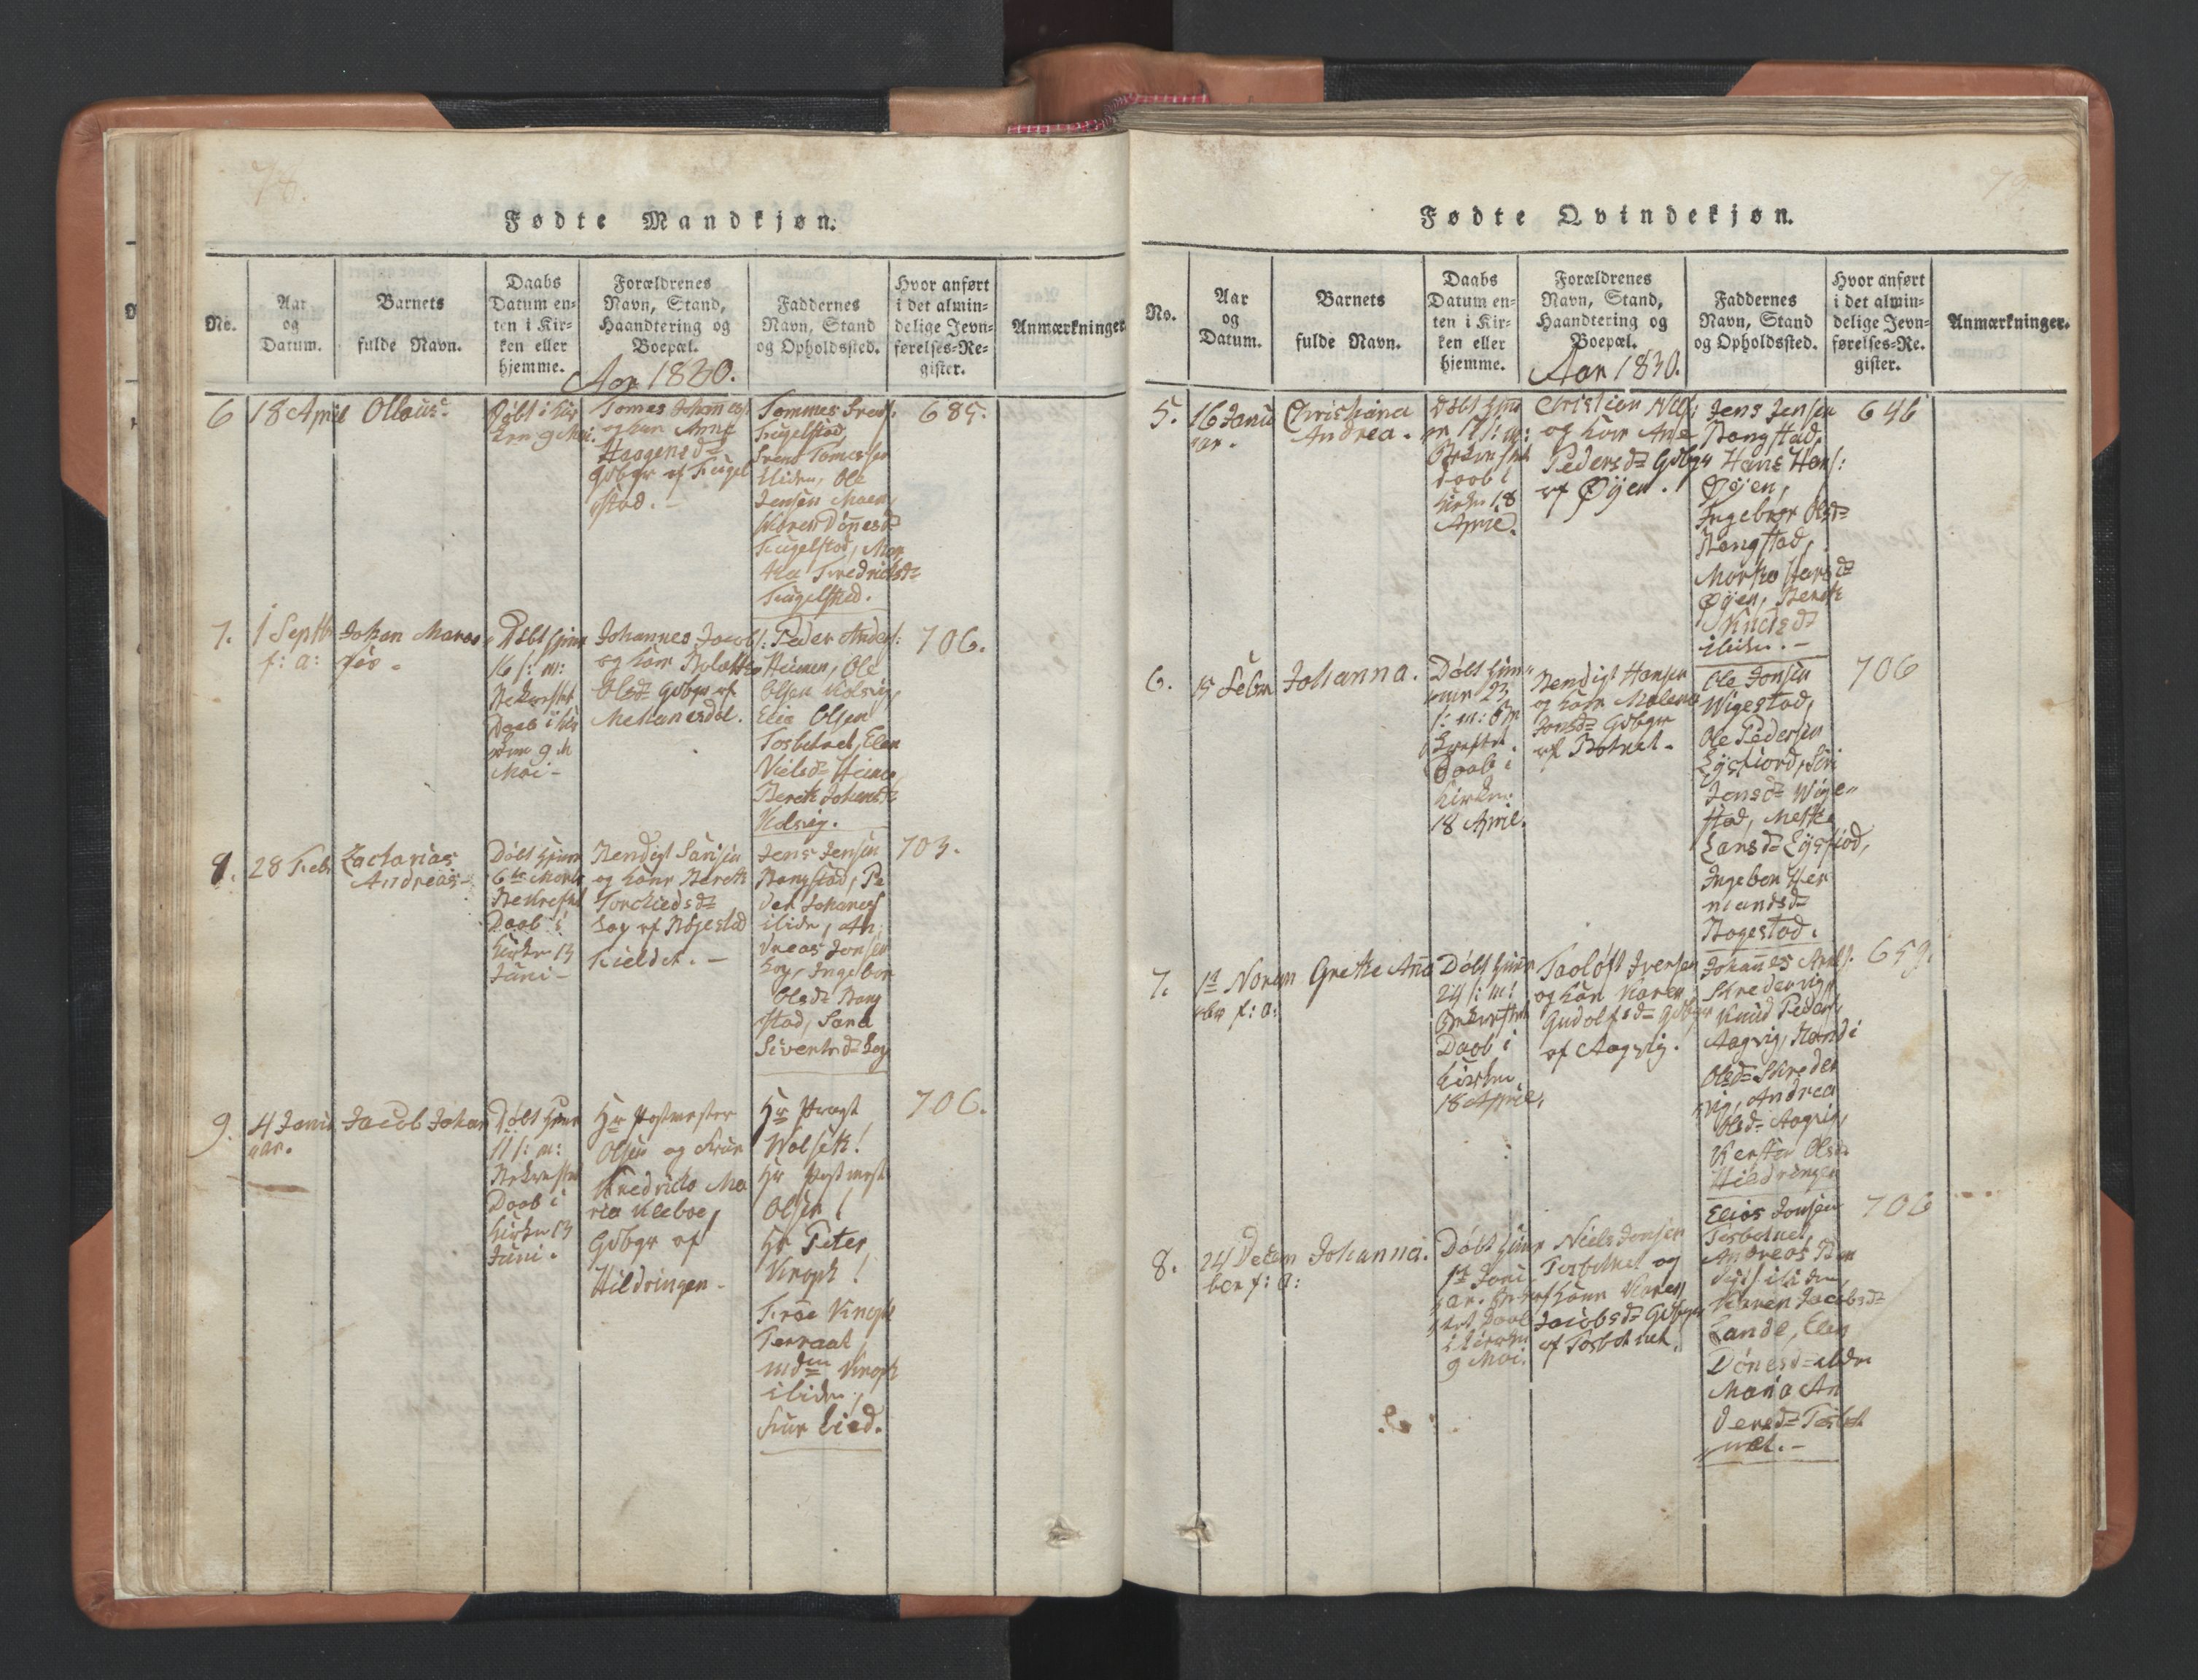 78.
Fødte Mandkjøn.
No.
Aar
og
Datum.
Barnets
fulde Navn.
Daabs
Datum en-
ten i Kir-
ken eller
hjemme.
Forældrenes
Navn, Stand,
Haandtering og
Boepæl.
Aar 1830.
Faddernes
Navn, Stand
og Opholdssted.
Hvor anført
i det almin-
delige Jevn-
førelses-Re-
gister.
Anmærkninger
6
18 April
Ollaus
Døbt i Kir
ken 9 Mai.
Tomas Johannes:
og kone Anne
Haagensd
Gdbgr af Fugel
stad. -
Tommes Svens:
Fugelstad,
Svend Tomesen
ibidm, Ole
Jensen Moen,
Karen Dønnesd
Fugelstad, Mar
tha Fredrichsd
Fugelstad.
685.
7.
1 Septb
f: a:
Johan Marcus
Døbt hjem
16 s: m:
Bekræftet
Daab i Kir
ken 9
Mai -
Johannes Jacobs:
og kone Bolethe
Olsd Gdbgr af
Peder Anders:
Heimen, Ole
Olsen Kolsvig,
Elias Olsen
Tosbotnet, Elen
Nielsd Heimen,
Bereth Johansd
Kolsvig.
706.
8.
28 Febr
Zacharias
Andreas -
Døbt hjem
6te Marts
Bekræftet
Daab i
Kirken 13
Juni -
Bendigt
og kone Bereth
Torchildsd
Log af Bøjestad
Fieldet. -
Jens Jensen
Bangstad, Pe
der Johanes
ibidm, An
dreas Jonsen
Log, Ingebor
Olsd Bang
stad, Sara
Sivertsd Log
703.
9.
4 Janu
ar.
Jacob Johan
Døbt hjem
11 s: m:
Bekræftet
Daab i
Kirken 13
Juni.
Hr Postmester
Olsen og Frue
Fredricka Ma
ria Kleboe,
Gdbgr af
Hildringen -
Hr Præst
Hr Postmest
Olsen!
Hr Peter
Knoph!
Frøe Knoph
Terraak
mdm Knoph
ibidm,
706.
79.
Fødte Qvindekjøn.
No.
Aar
og
Datum.
Barnets
fulde Navn.
Daabs
Datum en-
ten i Kir-
ken eller
hjemme.
Forældrenes
Navn, Stand,
Haandtering og
Boepæl.
Aar 1830.
Faddernes
Navn, Stand
og Opholdssted.
Hvor anført
i det almin-
delige Jevn-
førelses-Re.
gister.
Anmærkninger.
5.
16 Janu
ar.
Christiana
Andrea.
Døbt hjem
Bekræftet
Daab i
Kirken 18
April.
Christian Niels:
og kone Ane
Pedersd Gdbgr
af Øÿen.
Jens Jensen
Bangstad,
Hans Hans:
Øÿen,
Ingebor Olsd
Bangstad,
Martha Hansd
Øÿen, Bereth
Knudsd
ibidm. -
646
6.
15 Febr
Johanna.
Døbt hjem
23
s: m: Be
kræftet
Daab i
Kirken
18 April.
Bendigt Hansen
og kone Malena
Jensd Gdbgr
af Botnet.
Ole Jonsen
Wigestad,
Ole Pedersen
Eÿsfiord, Siri
Jensd Wige-
stad, Mette
Larsd Eÿsfiod,
Ingebor Her
mansd
Bogestad.
706
7.
1te Novem
ber f: a:
Grethe Anna
Døbt hjem
24 s: m:
Bekræftet
Daab i
Kirken
18 April.
Taoløft Iversen
og kone Karen
Gudolfsd Gdbgr
af Aagvig.
Johannes Arnts:
Skredervig,
Knud Peders,
Aagvig, Randi
Olsd Skreder
vig, Andrea
Olsd Aagvig,
Kersten Olsd
Hildringen
659.
8.
24 Decem
ber f: a:
Johanna.
Døbt hjem
1te Janu
ar. Bekræf
tet Daab
i Kirken
9 Mai.
Niels Jonsen
Tosbotnet og
kone Karen
Jacobsd Gdbgr
af Tosbotnet.
Elias Jonsen
Tosbotnet,
Andreas Ben
digts ibidm,
Karen Jacobsd
Lande, Elen
Dønesd ibidm
Maria An
dersd Tosbot
net. -
706